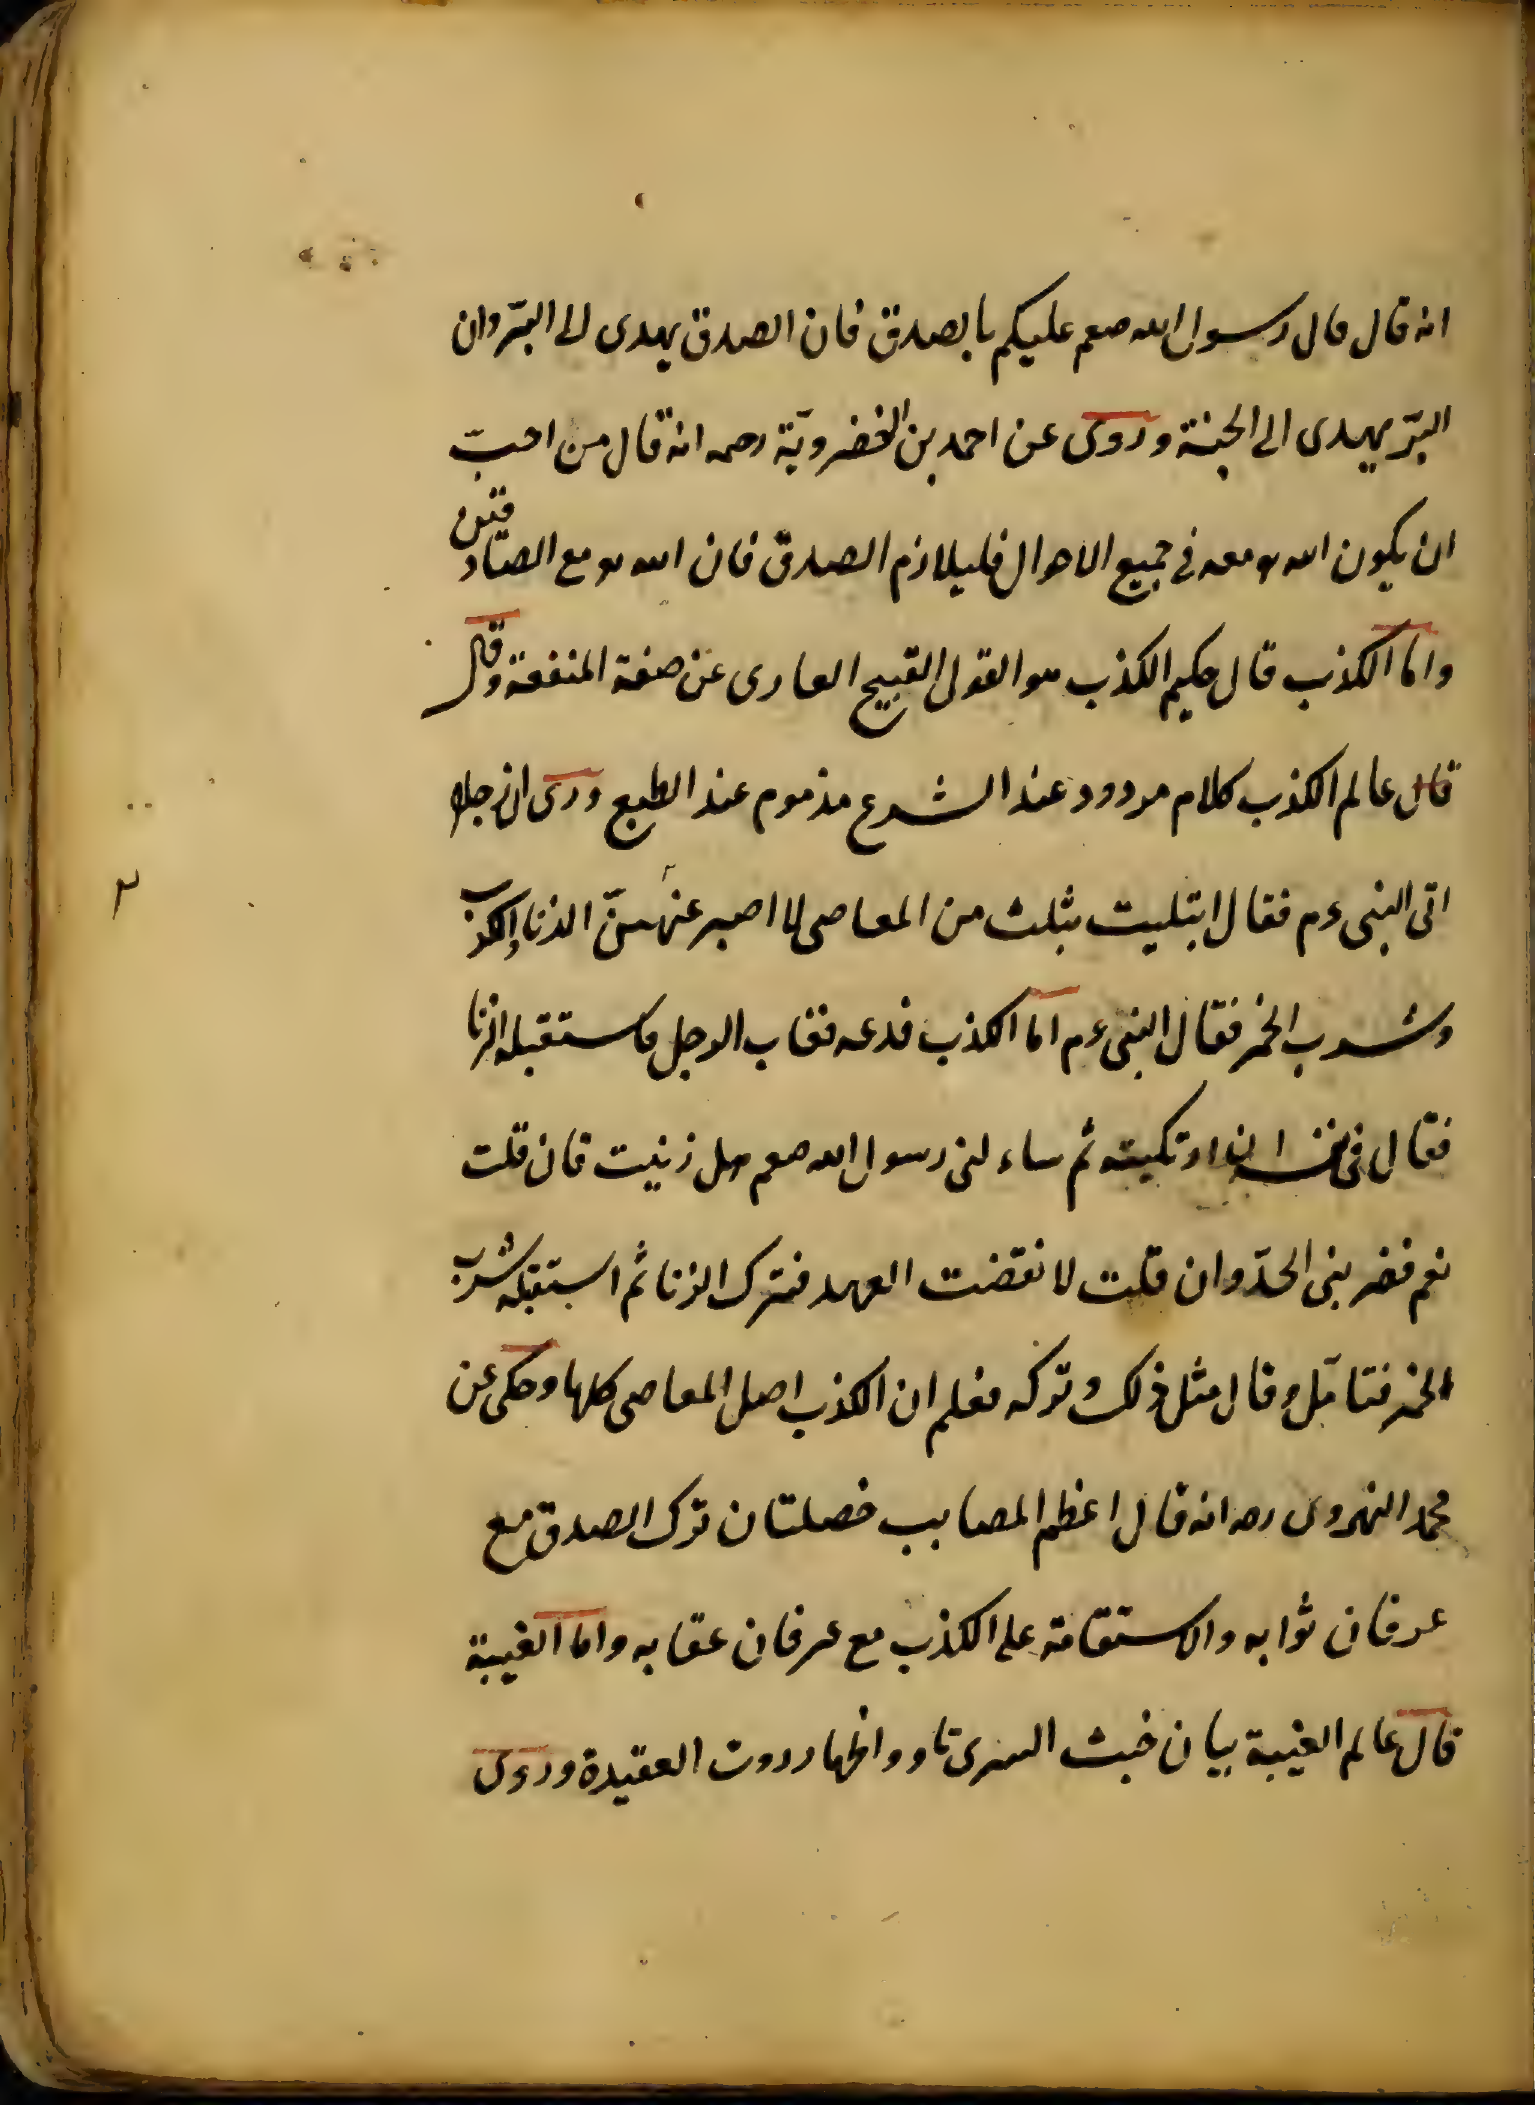 انه قال قال رسول الله صعم عليكم بالصدق فان الصدق يهدى الى البرّ وان
البرّ يهدى الى الجنة وروى عن احمد بن الخضروية رحمه انه قال من احبّ
ان يكون الله مه معه فى جميع الاحوال فليلازم الصدق فان الله مه مع الصّادقين
واما الكذب قال حكيم الكذب هو القول القبيح العارى عن صفة المنفعة وقال
قال عالم الكذب كلام مردود عند الشرع مذموم عند الطبع وروى ان رجلا
اتى النبى ءم فقال ابتليت بثلث من المعاصى لا اصبر عنهنّ الزنا والكذب
وشرب الخمر فقال النبى ءم اما الكذب فدعه فغاب الرجل فاستقبله الزنا
فقال فى نفسه ان ارتكبته ثم ساءلنى رسول الله صعم هل زنيت فان قلت
نعم فضربنى الحدّ وان قلت لا نقضت العهد فترك الزنا ثم استقبله شرب
الخمر فتامّل وقال مثل ذلك وتركه فعلم ان الكذب اصل المعاصى كلها وحكى عن
محمد النهروى ره انه قال اعظم المصايب خصلتان ترك الصدق مع
عرفان ثوابه والاستقامة على الكذب مع عرفان عقابه واما الغيبة
قال عالم الغيبة بيان خبث السرى واظهار روت العقيدة وروى
٣